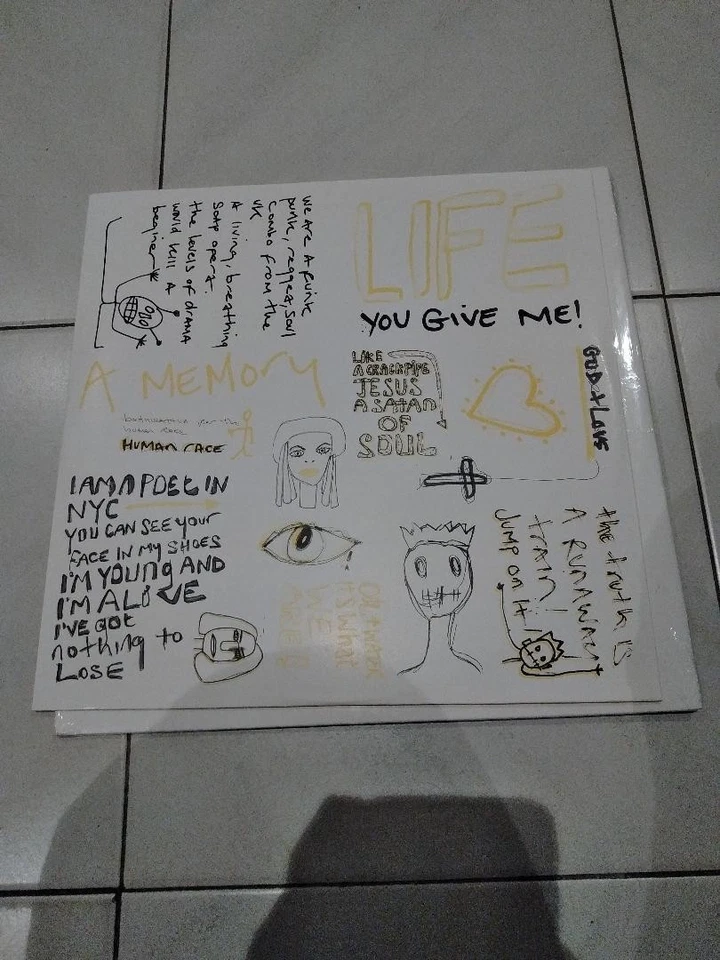 LIFE
YOU GIVE ME!
We are A funk
punk, reggea, soul
Combo from the
UK
A living, breathing
Soap opera.
the levels of drama
would kill A
beginner
A MEMORY
LIKE
A CRACKPIPE
JESUS
A SATAN
OF
SOUL
GOD + LOVE
human race
HUMAN RACE
I AM A POET IN
NYC
YOU CAN SEE your
FACE IN MY SHOES
I'M YOUNG AND
I'M ALiVE
I'VE GOt
nothing to
LOSE
the truth is
A RUNAWAY
train!
JUMP on It